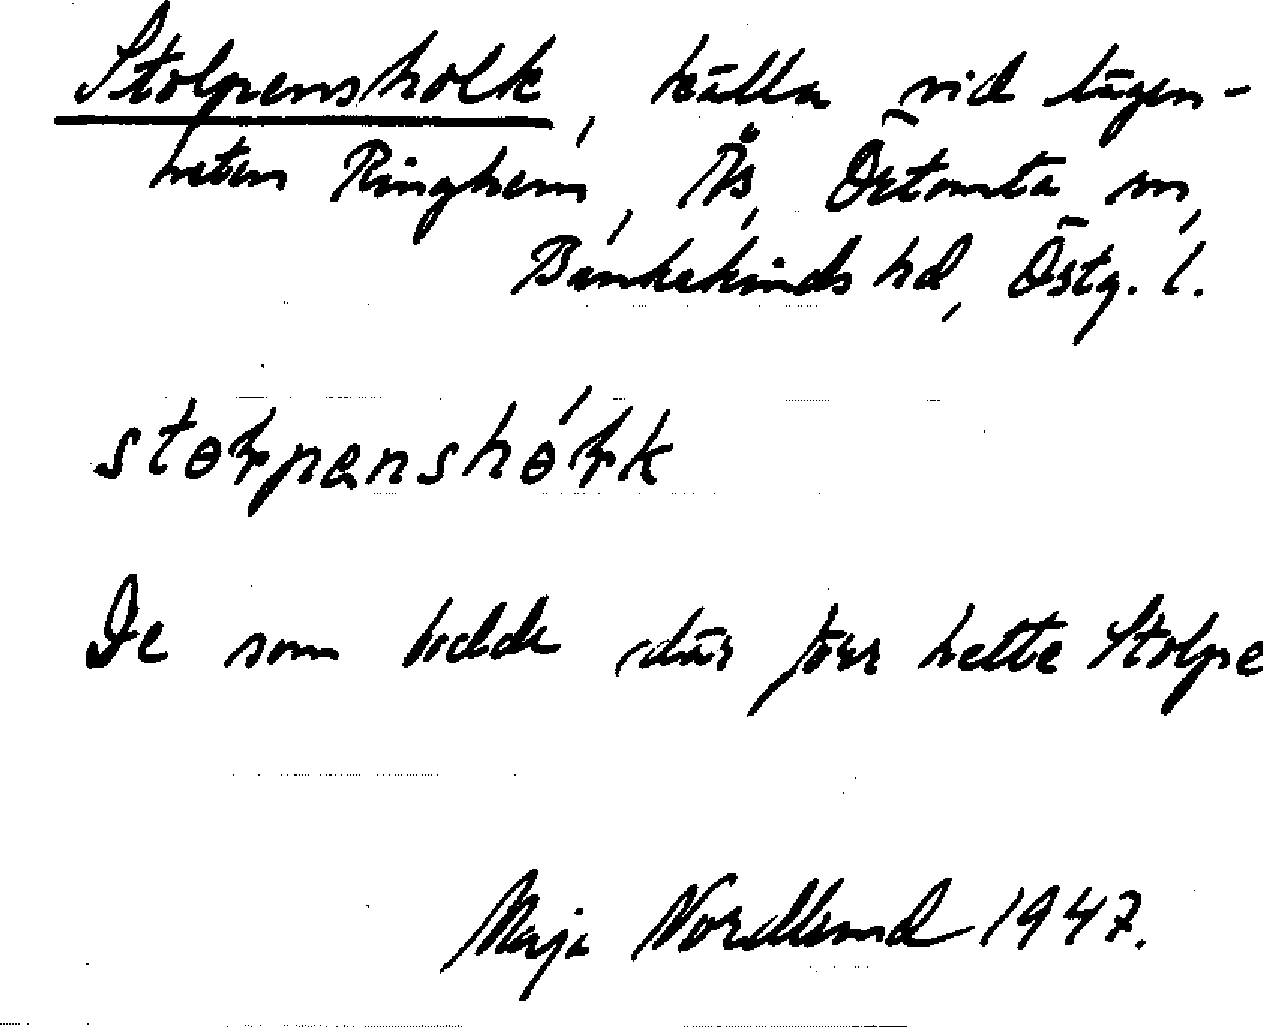 Stolpensholk, källa vid lägen-
heten Ringhem, Ås, Örtomta sn,
Bankekinds hd, Östg. l.
De som bodde där förr hette Stolpe
Maja Nordlund 1947.